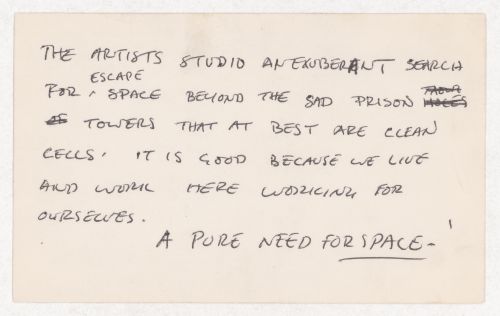 THE ARTISTS STUDIO AN EXUBERANT SEARCH
ESCAPE
FOR ^ SPACE BEYOND THE SAD PRISON
TOWERS THAT AT BEST ARE CLEAN
CELLS. IT IS GOOD BECAUSE WE LIVE
AND WORK HERE WORKING FOR
OURSELVES.
A PURE NEED FOR SPACE -